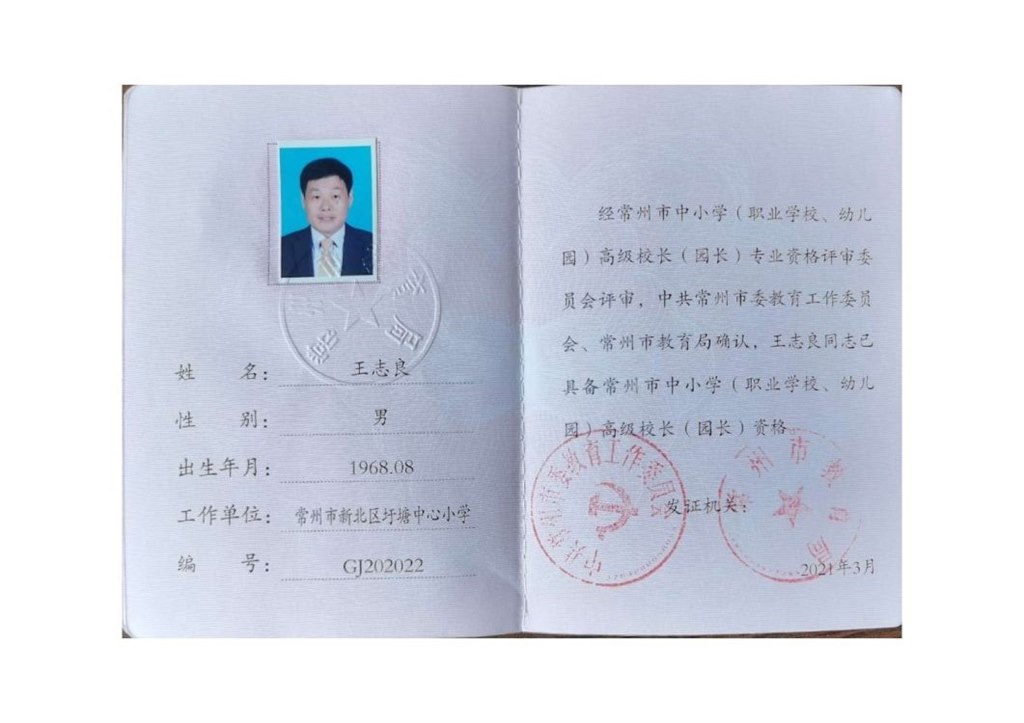 姓 名：王志良
性 别：男
出生年月：1968.08
工作单位：常州市新北区圩塘中心小学
编 号：GJ202022
经常州市中小学（职业学校、幼儿
园）高级校长（园长）专业资格评审委
员会评审，中共常州市委教育工作委员
会、常州市教育局确认，王志良同志已
具备常州市中小学（职业学校、幼儿
园）高级校长（园长）资格
中共常州市委教育工作委员会
发证机关：
州市教育局
2021年3月